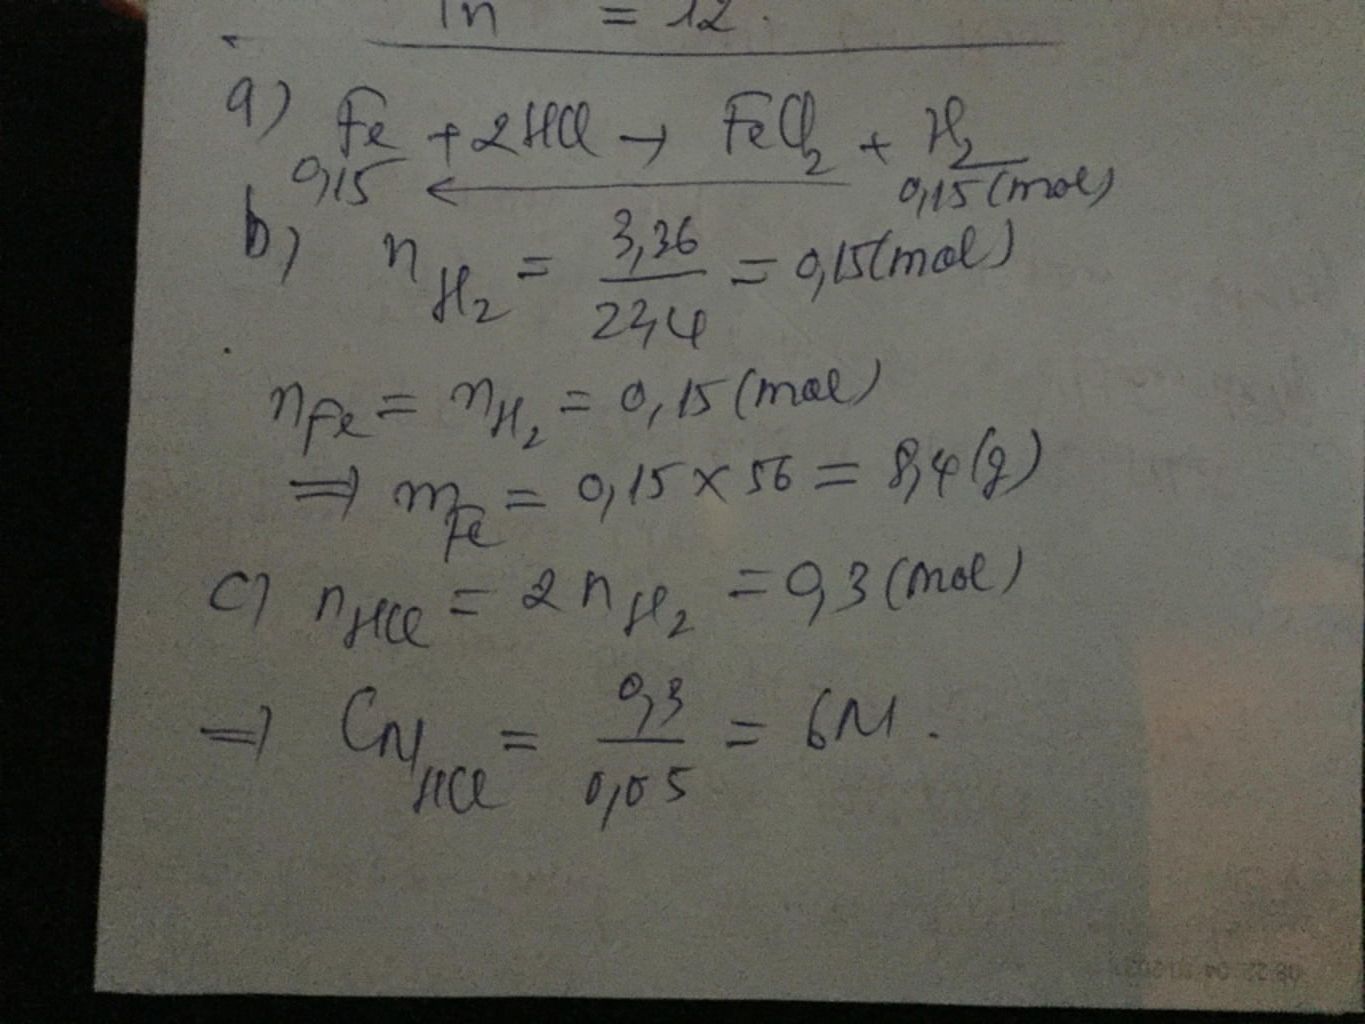 = 12.
a) Fe + 2HCl → FeCl2 + H2
0,15 ← 0,15 (mol)
b) nH2 = 3,36 / 22,4 = 0,15 (mol)
nFe = nH2 = 0,15 (mol)
⇒ mFe = 0,15 x 56 = 8,4 (g)
c) nHCl = 2 nH2 = 0,3 (mol)
⇒ CM HCl = 0,3 / 0,05 = 6M.